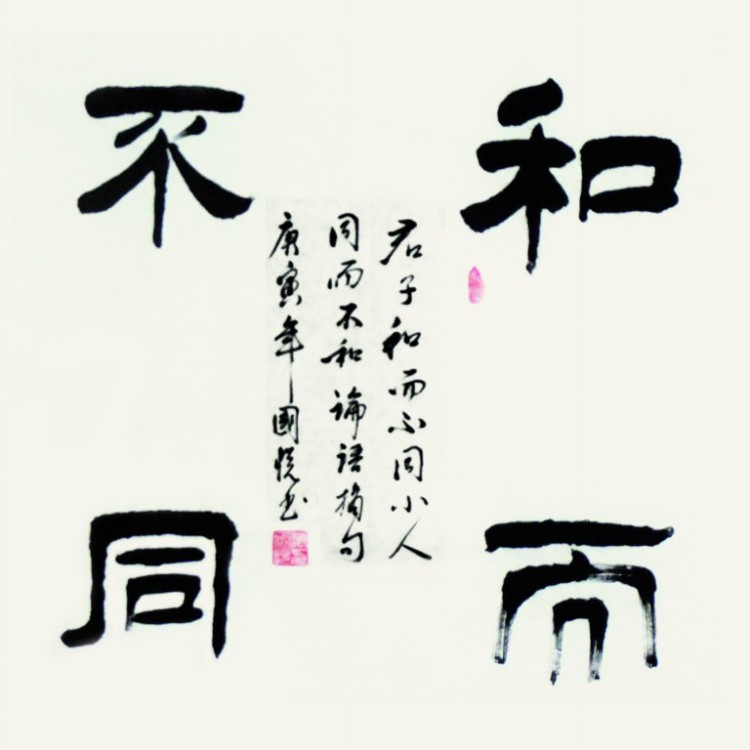 和而
不同
君子和而不同小人
同而不和论语摘句
庚寅年國悦书